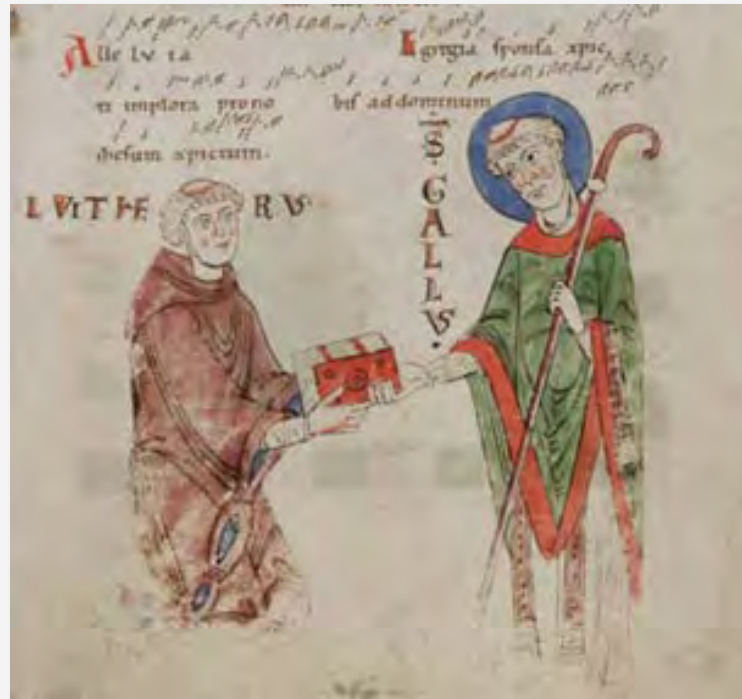 Alle lu ia Egregia sponsa xpic,
ti implora prono bis ad dominum
ihesum xpictum.
LVITHE RVS
S GALLVS.